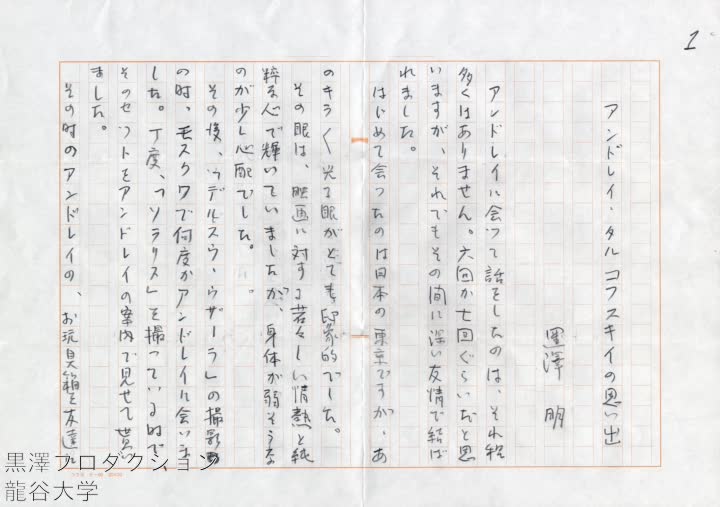 1
アンドレイ・タルコフスキイの思い出
黒澤 明
アンドレイに会って話をしたのは、それ程
多くはありません。六回か七回ぐらいだと思
いますが、それでもその間に深い友情で結ば
れました。
はじめて会ったのは日本の東京ですが、あ
のキラく光る眼がとても印象的でした。
その眼は、映画に対する若々しい情熱と純
粋な心で輝いていましたが、身体が弱そうな
のが少し心配でした。
その後、「デルスウ・ウザーラ」の撮影
の時、モスクワで何度かアンドレイに会いま
した。丁度、「ソラリス」を撮っている時で
そのセットをアンドレイの案内で見せて貰い
ました。
その時のアンドレイの、お玩具箱を友達に
黒澤プロダクション
龍谷大学